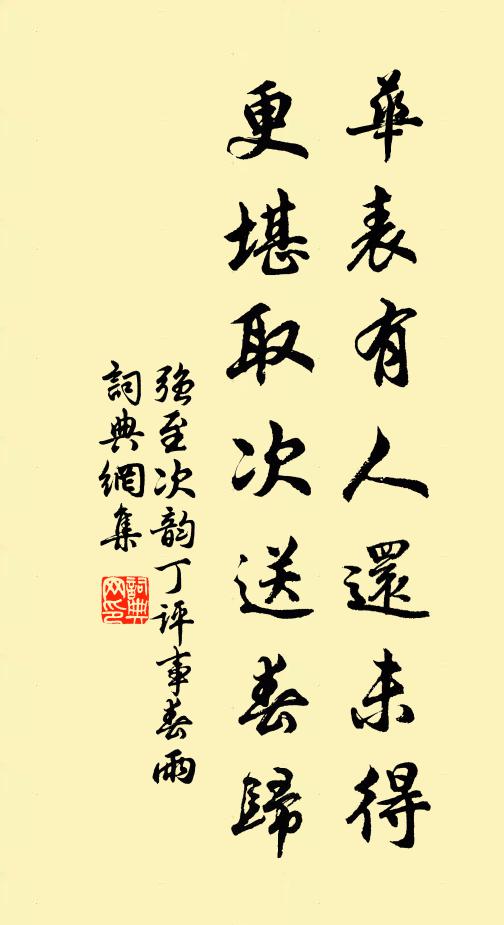 華表有人還未得
更堪取次送春歸
强至次韵丁評事春雨
詞典網集